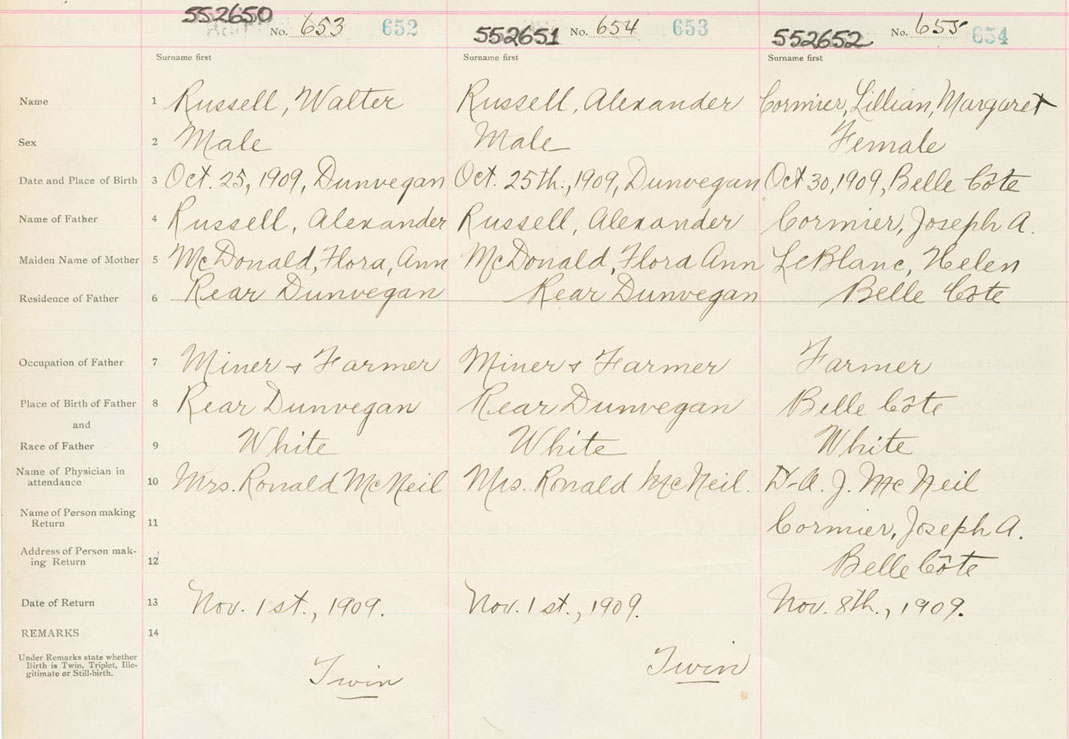 552650 No. 653 652 552651 No. 654 653 552652 No. 655 654
Surname first Surname first Surname first
Name 1 Russell, Walter Russell, Alexander Cormier, Lillian, Margaret
Sex 2 Male Male Female
Date and Place of Birth 3 Oct. 25, 1909, Dunvegan Oct. 25th., 1909, Dunvegan Oct 30, 1909, Belle Côte
Name of Father 4 Russell, Alexander Russell, Alexander Cormier, Joseph A.
Maiden Name of Mother 5 McDonald, Flora, Ann McDonald, Flora Ann LeBlanc, Helen
Residence of Father 6 Rear Dunvegan Rear Dunvegan Belle Côte
Occupation of Father 7 Miner & Farmer Miner & Farmer Farmer
Place of Birth of Father 8 Rear Dunvegan Rear Dunvegan Belle Côte
and
Race of Father 9 White White White
Name of Physician in
attendance 10 Mrs. Ronald McNeil Mrs. Ronald McNeil. D- A. J. McNeil
Name of Person making
Return 11 Cormier, Joseph A.
Address of Person mak-
ing Return 12 Belle Côte
Date of Return 13 Nov. 1st., 1909. Nov. 1st., 1909. Nov. 8th., 1909.
REMARKS 14
Under Remarks state whether
Birth is Twin, Triplet, Ille-
gitimate or Still-birth.
Twin Twin